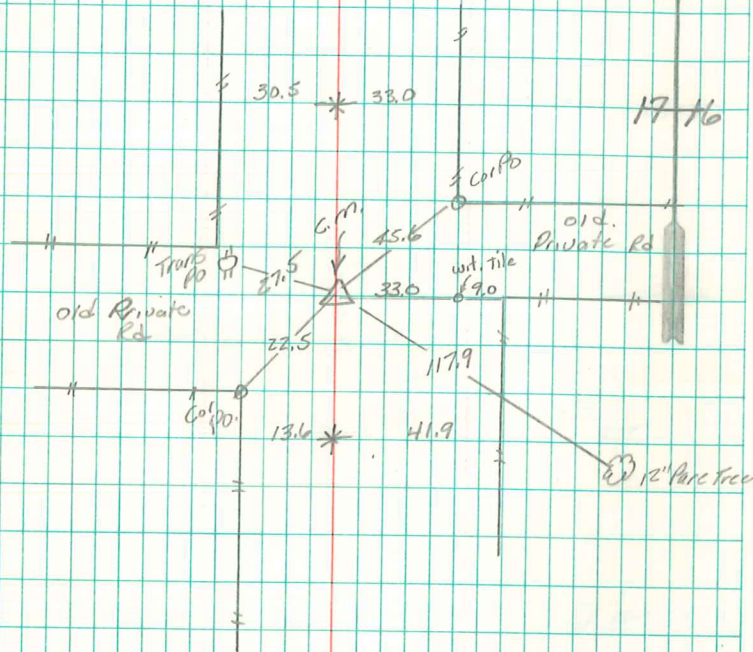 30.5 33.0
17 16
Cor Po
old.
Private Rd
C.M.
45.6
wit. Tile
Trans
Po
27.5
33.0
9.0
old Private
Rd
22.5
117.9
Cor
po.
13.6 41.9
12" Pare Tree